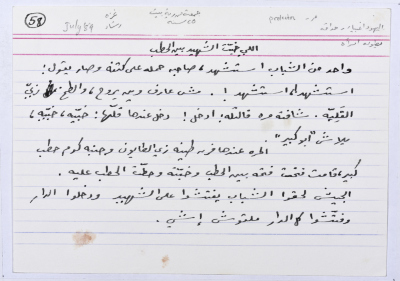 58
July 89
غزة
اللي خبّت الشهيد بين الحطب
واحد من الشباب استشهد، صاحبه حمله على كتفه وصار يقول:
استشهد! استشهد!. مش عارف وين يروح، والطخ زيّ
القليّة. شافته مره قالتله: ادخل! دخل عندها قلّها: خبّيه، خبّيه،
"أبو كبير"
المره عندها فرن طينه زي الطابون وجنبه كوم حطب
كبير، قامت فتحت فتحه بين الحطب وخبّته وحطّت الحطب عليه.
الجيش لحقوا الشباب يفتشوا على الشهيد ودخلوا الدار
وفتّشوا كل الدار ملقوش إشي.